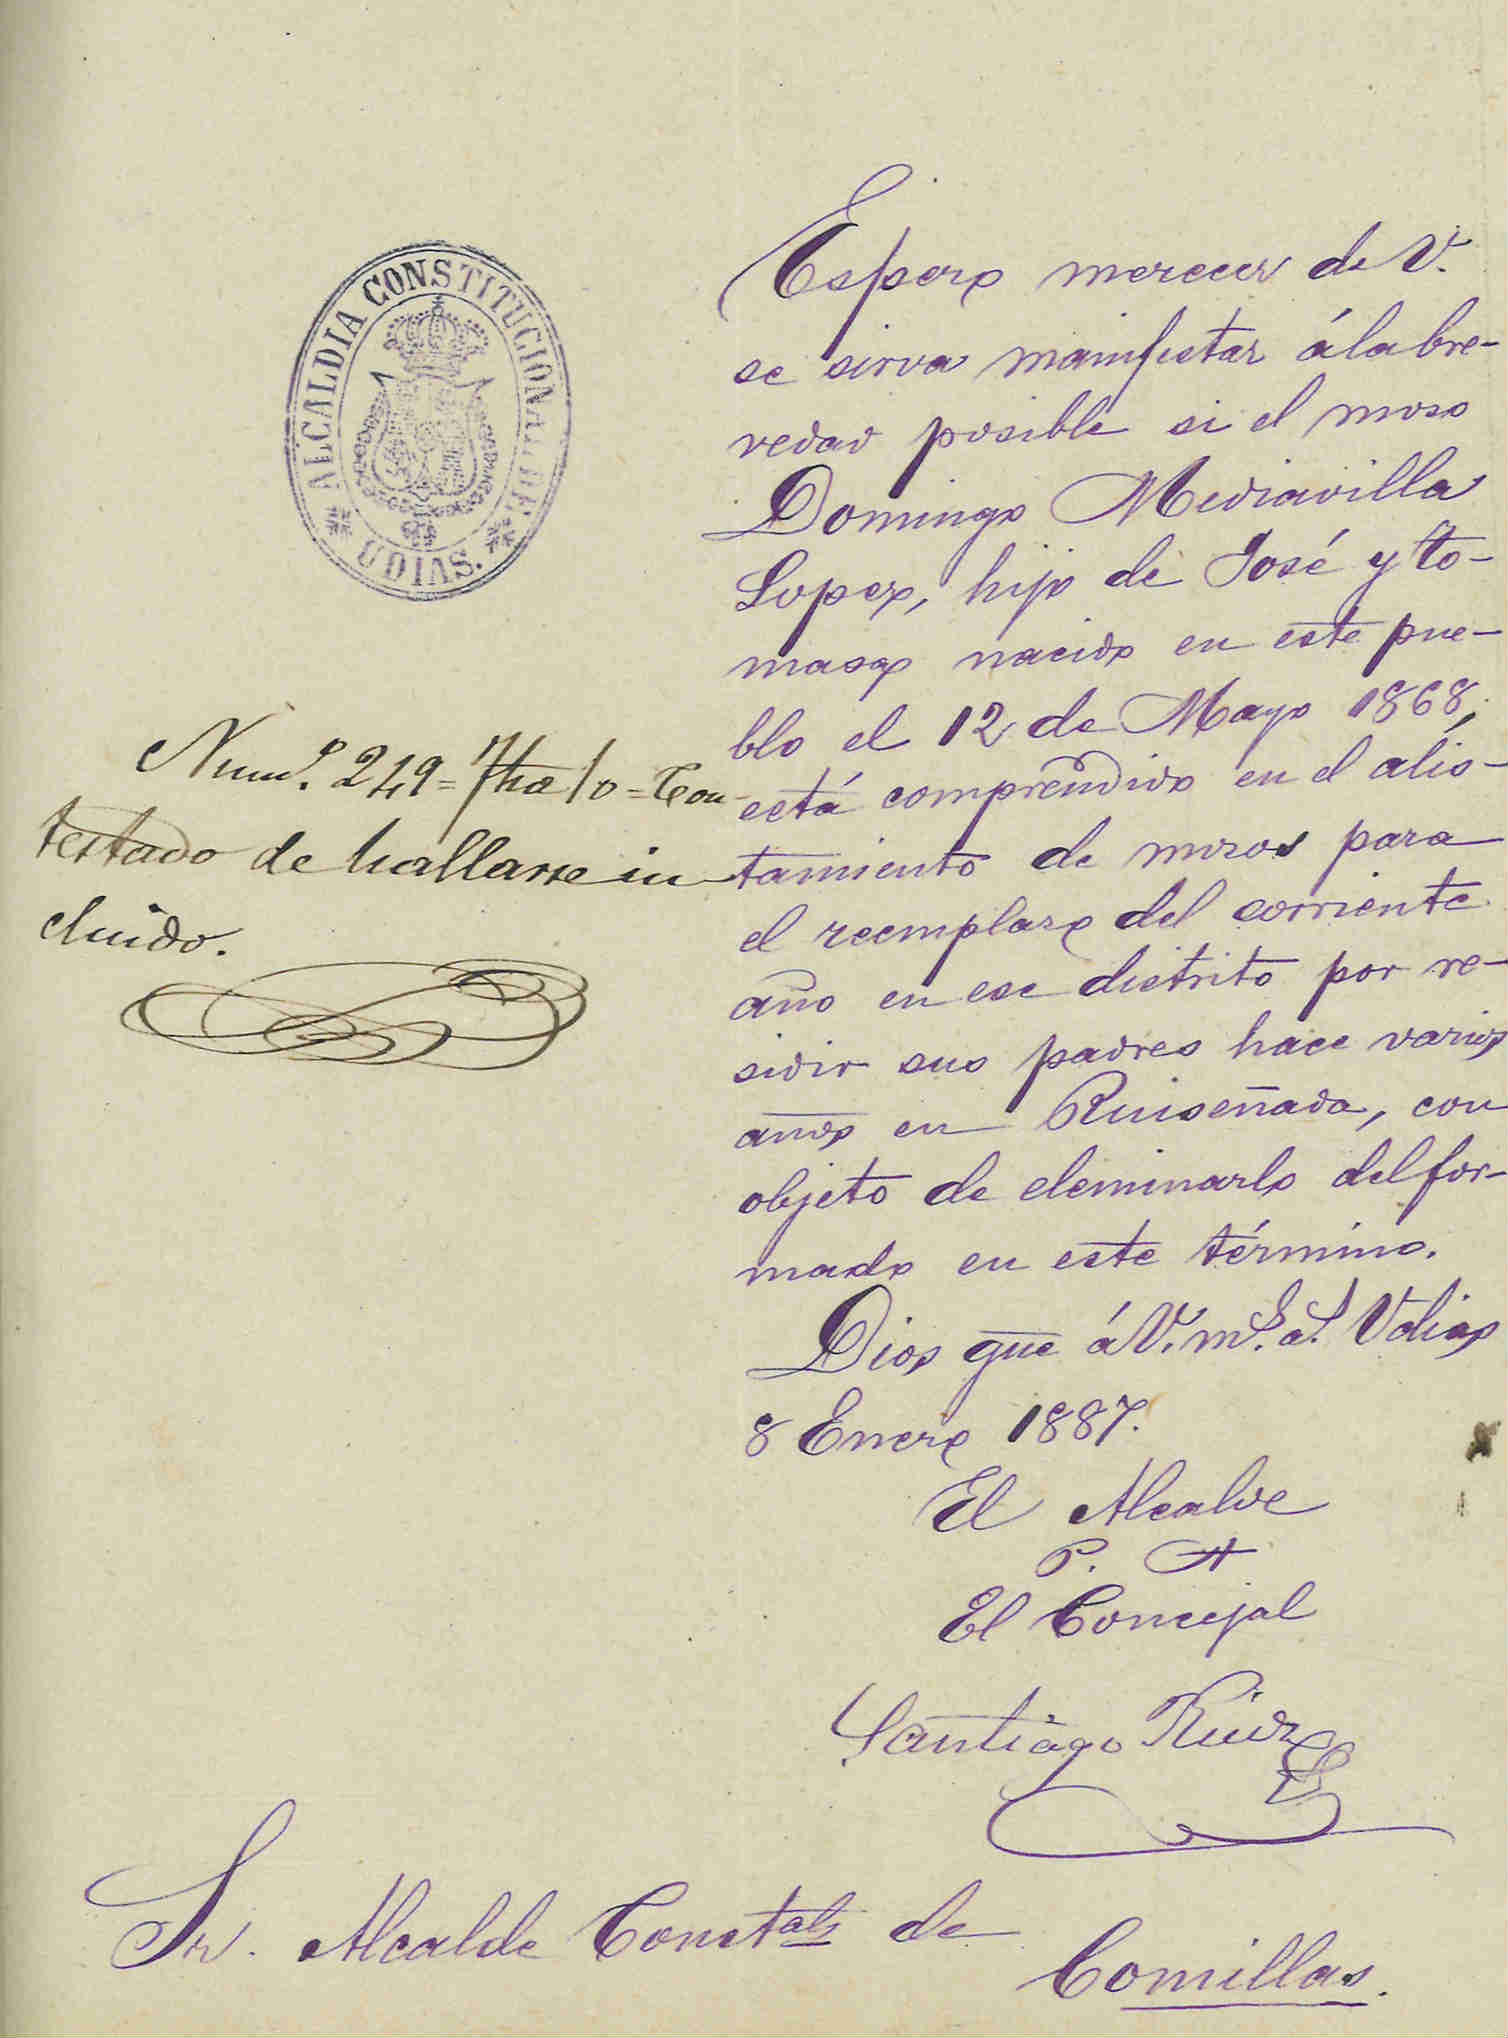 ALCALDIA CONSTITUCIONAL DE
UDIAS.
Espero merecer de V.
se sirva manifestar á la bre-
vedad posible si el moso
Domingo Mediavilla
Lopez, hijo de José y To-
masa nacido en este pue-
blo el 12 de Mayo 1868,
está comprendido en el alis-
tamiento de mozos para
el reemplazo del corriente
año en ese distrito por re-
sidir sus padres hace varios
años en Ruiseñada, con
objeto de eleminarlo del for-
mado en este término.
Dios gue á V. m.s a.s Udias
8 Enero 1887.
El Alcalde
P. A
El Concejal
Santiago Ruiz
Num.o 249= fha 10= Con-
testado de hallarse in
cluido.
Sr. Alcalde Constal de
Comillas.